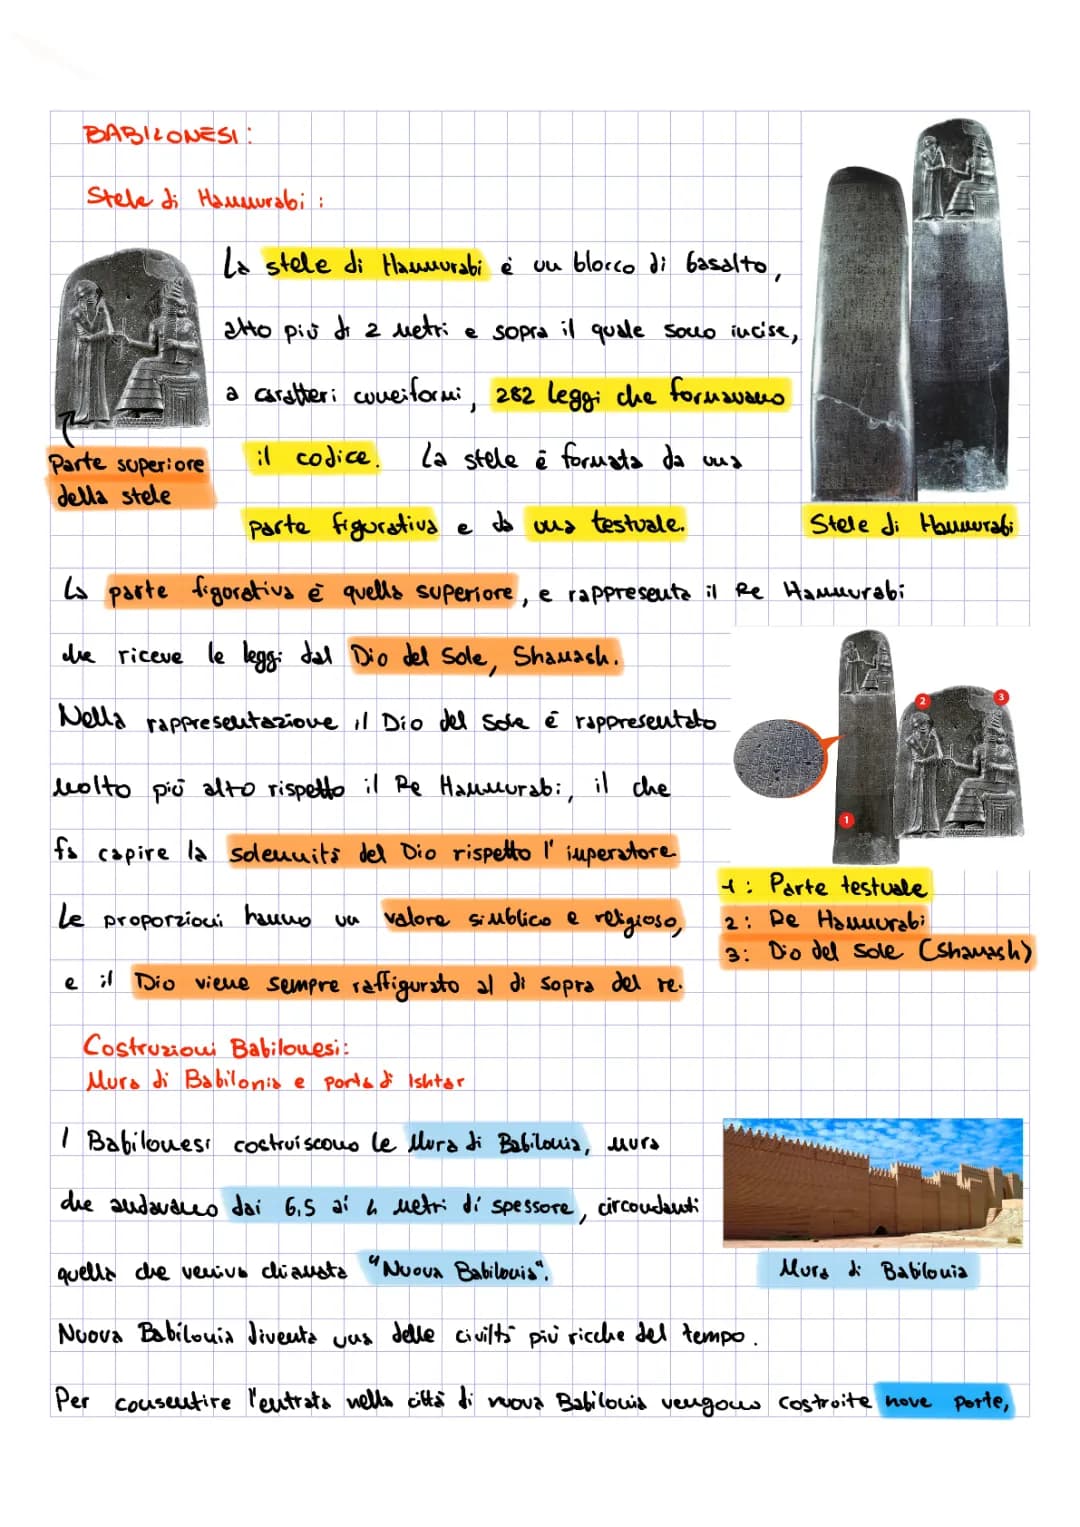 BABILONESI:
Stele di Hammurabi:
La stele di Hammurabi è un blocco di basalto,
alto più di 2 metri e sopra il quale sono incise,
a caratteri cuneiformi, 282 leggi che formavano
il codice. La stele è formata da una
parte figurativa e da una testuale.
Parte superiore
della stele
Stele di Hammurabi
La parte figurativa è quella superiore, e rappresenta il Re Hammurabi
che riceve le leggi dal Dio del Sole, Shamash.
Nella rappresentazione il Dio del Sole è rappresentato
molto più alto rispetto il Re Hammurabi, il che
fa capire la solennità del Dio rispetto l'imperatore.
Le proporzioni hanno un valore simblico e religioso,
e il Dio viene sempre raffigurato al di sopra del re.
2
3
1
1: Parte testuale
2: Re Hammurabi
3: Dio del Sole (Shamash)
Costruzioni Babilonesi:
Mura di Babilonia e porta di Ishtar
I Babilonesi costruiscono le Mura di Babilonia, mura
che andavano dai 6,5 ai 4 metri di spessore, circondanti
quella che veniva chiamata "Nuova Babilonia".
Mura di Babilonia
Nuova Babilonia diventa una delle civiltà più ricche del tempo.
Per consentire l'entrata nella città di nuova Babilonia vengono costruite nove porte,